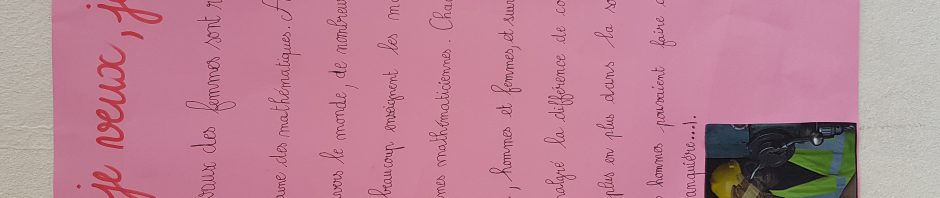 je veux, je
des femmes sont
des mathématiques
le monde, de nombreu
beaucoup enseignent les
mathématiciennes. Cha
, hommes et femmes, et sur
malgré la différence de co
plus en plus dans la so
hommes pourraient faire
anquière...).